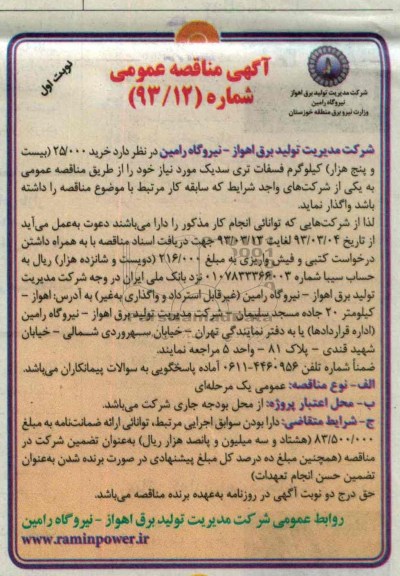 نوبت اول
آگهی مناقصه عمومی
شماره (۹۳/۱۲)
شرکت مدیریت تولید برق اهواز
نیروگاه رامین
وزارت نیرو برق منطقه خوزستان
شرکت مدیریت تولید برق اهواز - نیروگاه رامین در نظر دارد خرید ۲۵/۰۰۰ (بیست
و پنج هزار) کیلوگرم فسفات تری سدیک مورد نیاز خود را از طریق مناقصه عمومی
به یکی از شرکت‌های واجد شرایط که سابقه کار مرتبط با موضوع مناقصه را داشته
باشد واگذار نماید.
لذا از شرکت‌هایی که توانائی انجام کار مذکور را دارا می‌باشند دعوت به‌عمل می‌آید
از تاریخ ۹۳/۰۳/۰۴ لغایت ۹۳/۰۳/۱۲ جهت دریافت اسناد مناقصه با به همراه داشتن
درخواست کتبی و فیش واریزی به مبلغ ۲۱۶/۰۰۰ (دویست و شانزده هزار) ریال به
حساب سیبا شماره ۰۱۰۷۸۳۳۳۶۶۰۰۳ نزد بانک ملی ایران در وجه شرکت مدیریت
تولید برق اهواز - نیروگاه رامین (غیرقابل استرداد و واگذاری به‌غیر) به آدرس: اهواز -
کیلومتر ۲۰ جاده مسجد سلیمان - شرکت مدیریت تولید برق اهواز - نیروگاه رامین
(اداره قراردادها) یا به دفتر نمایندگی تهران - خیابان سهروردی شمالی - خیابان
شهید قندی - پلاک ۸۱ - واحد ۵ مراجعه نمایند.
ضمناً شماره تلفن ۴۴۶۰۹۵۶-۰۶۱۱ آماده پاسخگویی به سوالات پیمانکاران می‌باشد.
الف- نوع مناقصه: عمومی یک مرحله‌ای
ب- محل اعتبار پروژه: از محل بودجه جاری شرکت می‌باشد.
ج- شرایط متقاضی: دارا بودن سوابق اجرایی مرتبط، توانائی ارائه ضمانت‌نامه به مبلغ
۸۳/۵۰۰/۰۰۰ (هشتاد و سه میلیون و پانصد هزار ریال) به‌عنوان تضمین شرکت در
مناقصه (همچنین مبلغ ده درصد کل مبلغ پیشنهادی در صورت برنده شدن به‌عنوان
تضمین حسن انجام تعهدات)
حق درج دو نوبت آگهی در روزنامه به‌عهده برنده مناقصه می‌باشد.
روابط عمومی شرکت مدیریت تولید برق اهواز - نیروگاه رامین
www.raminpower.ir